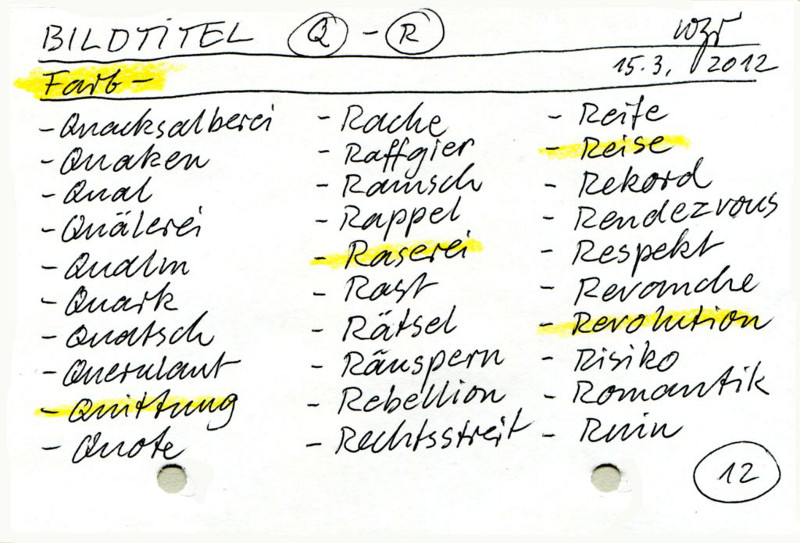 BILDTITEL Q - R
15.3. 2012
Farb-
- Quacksalberei
- Quaken
- Qual
- Quälerei
- Qualm
- Quark
- Quatsch
- Querulant
- Quittung
- Quote
- Rache
- Raffgier
- Ramsch
- Rappel
- Raserei
- Rast
- Rätsel
- Räuspern
- Rebellion
- Rechtsstreit
- Reife
- Reise
- Rekord
- Rendezvous
- Respekt
- Revanche
- Revolution
- Risiko
- Romantik
- Ruin
12